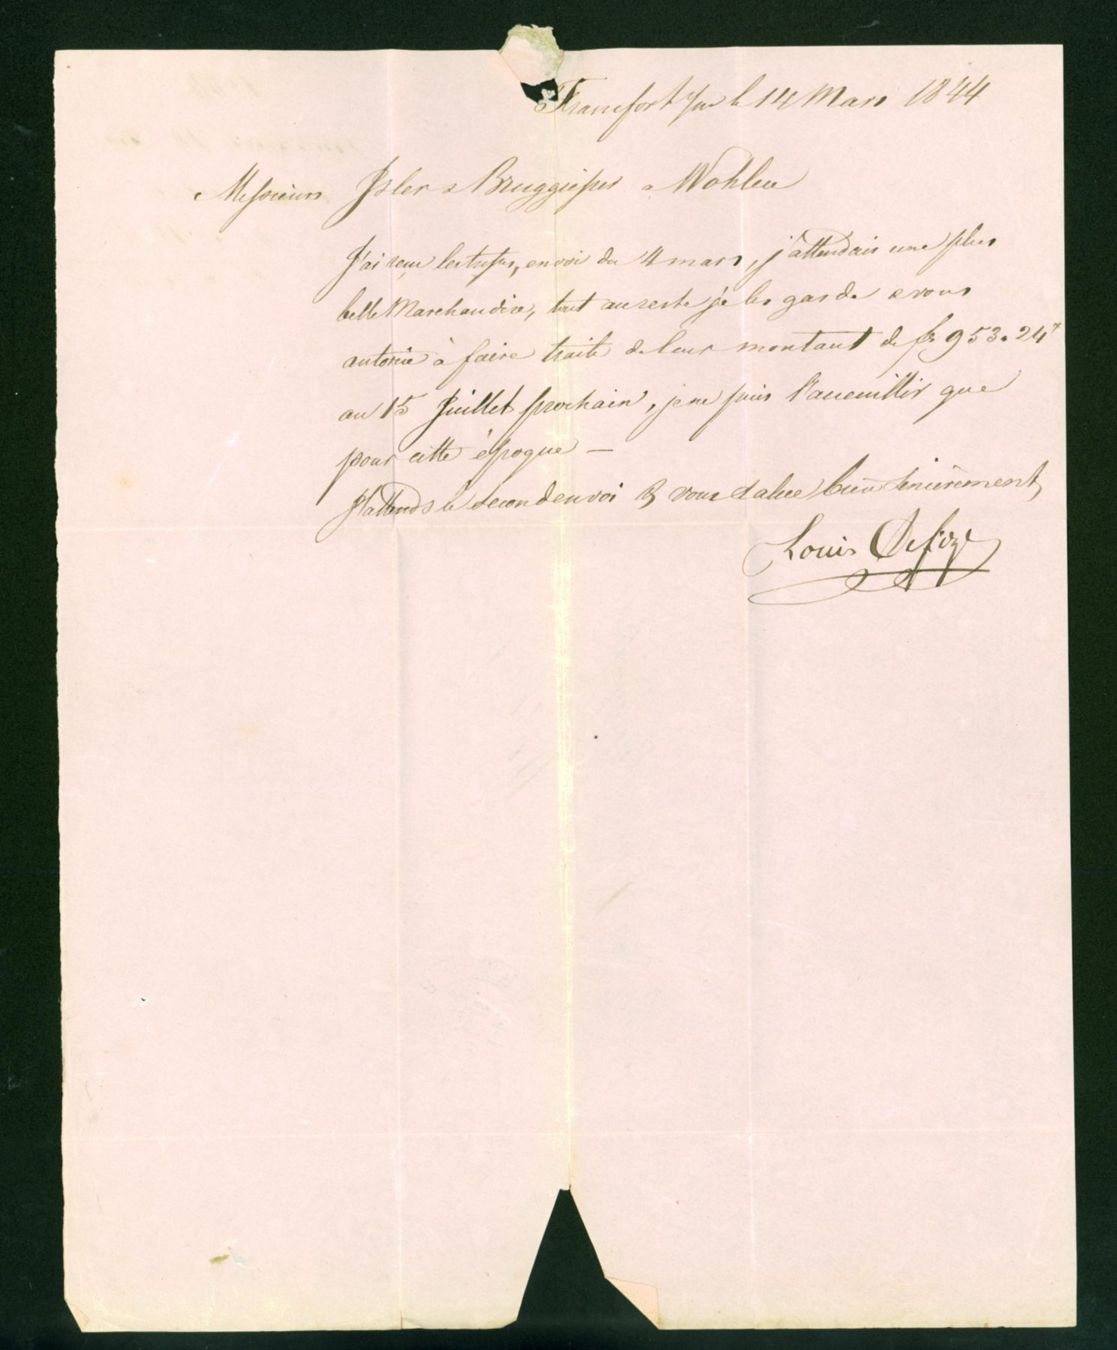 Francfort s/m le 14 Mars 1844
Messieurs Isler & Bruggisser a Wohlen
J'ai reçu les tresses, envoi du 4 mars, j'attendais une plus
belle Marchandise, tout au reste je les garde & vous
autorise à faire traite de leur montant de fr 953.24
au 15 Juillet prochain, je ne puis l'accueillir que
pour cette époque —
J'attends le second envoi & vous salue bien sincèrement
Louis